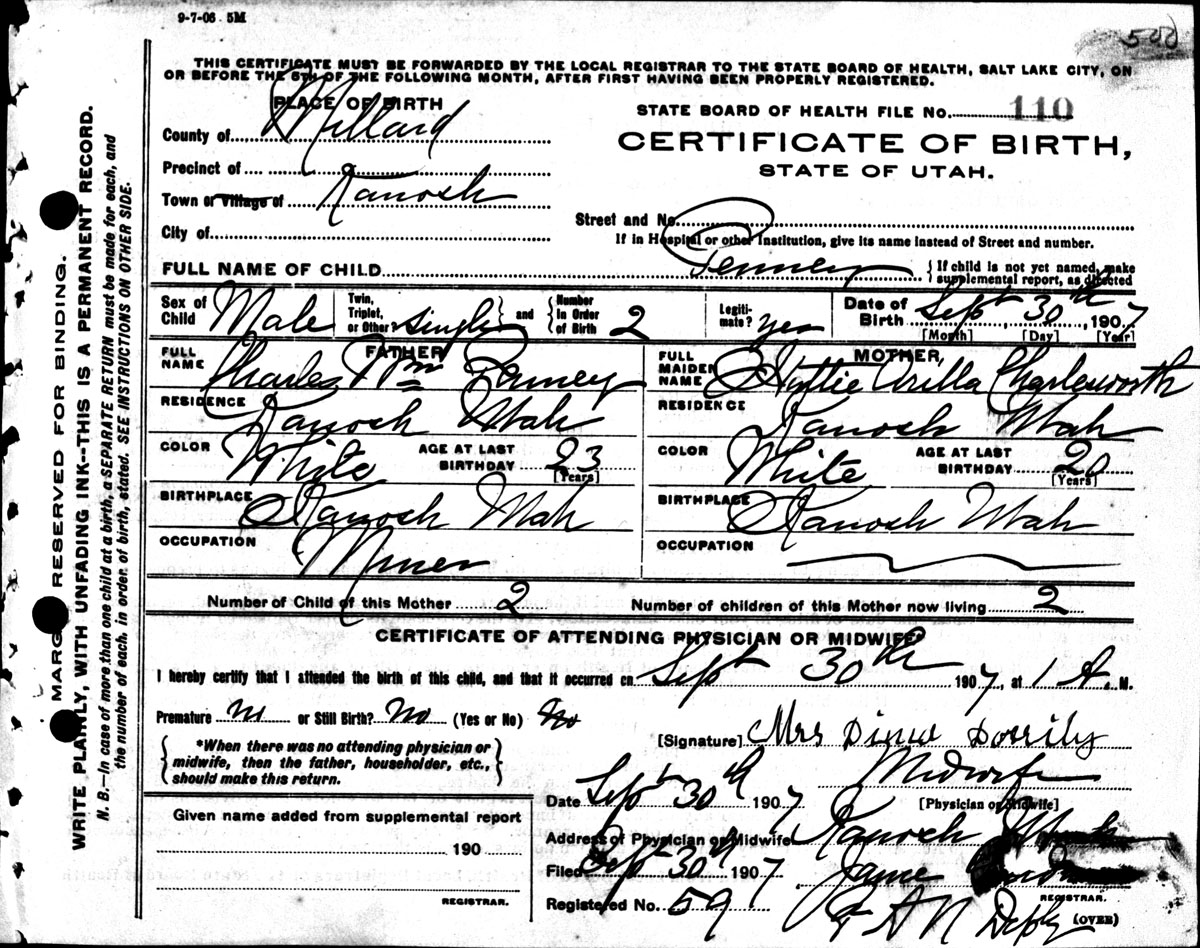 9-7-06 5M
500
THIS CERTIFICATE MUST BE FORWARDED BY THE LOCAL REGISTRAR TO THE STATE BOARD OF HEALTH, SALT LAKE CITY, ON
OR BEFORE THE 5TH OF THE FOLLOWING MONTH, AFTER FIRST HAVING BEEN PROPERLY REGISTERED.
PLACE OF BIRTH
STATE BOARD OF HEALTH FILE No. 110
County of Millard
CERTIFICATE OF BIRTH,
STATE OF UTAH.
Precinct of
Town or Village of Kanosh
Street and No.
City of
If in Hospital or other Institution, give its name instead of Street and number.
FULL NAME OF CHILD Penney
{ If child is not yet named, make
supplemental report, as directed
Sex of Child Male
Twin, Triplet, or Other? Single
and
Number in Order of Birth 2
Legiti-mate? yes
Date of Birth Sept 30th, 1907
[Month] [Day] [Year]
FATHER
FULL NAME Charles Wm Penney
RESIDENCE Kanosh Utah
COLOR White
AGE AT LAST BIRTHDAY 23
[Years]
BIRTHPLACE Kanosh Utah
OCCUPATION Miner
MOTHER
FULL MAIDEN NAME Hattie Arilla Charlesworth
RESIDENCE Kanosh Utah
COLOR White
AGE AT LAST BIRTHDAY 20
[Years]
BIRTHPLACE Kanosh Utah
OCCUPATION
Number of Child of this Mother 2
Number of children of this Mother now living 2
CERTIFICATE OF ATTENDING PHYSICIAN OR MIDWIFE
I hereby certify that I attended the birth of this child, and that it occurred on Sept 30th 1907, at 1 A. M.
Premature no or Still Birth? No (Yes or No) No
*When there was no attending physician or
midwife, then the father, householder, etc.,
should make this return.
[Signature] Mrs
Midwife
[Physician or Midwife]
Date Sept 30th 1907
Address of Physician or Midwife Kanosh Utah
Filed Sept 30th 1907
REGISTRAR.
Registered No. 59
(OVER)
Given name added from supplemental report
190
REGISTRAR.
MARGIN RESERVED FOR BINDING.
WRITE PLAINLY, WITH UNFADING INK--THIS IS A PERMANENT RECORD.
N. B.—In case of more than one child at a birth, a SEPARATE RETURN must be made for each, and
the number of each, in order of birth, stated. SEE INSTRUCTIONS ON OTHER SIDE.